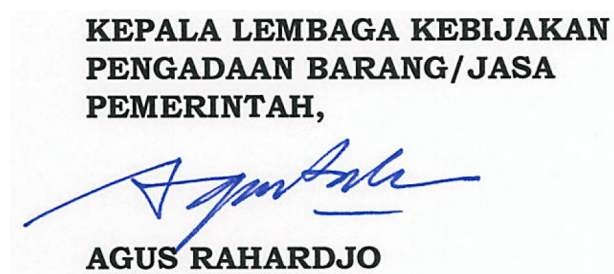 KEPALA LEMBAGA KEBIJAKAN
PENGADAAN BARANG/JASA
PEMERINTAH,
AGUS RAHARDJO